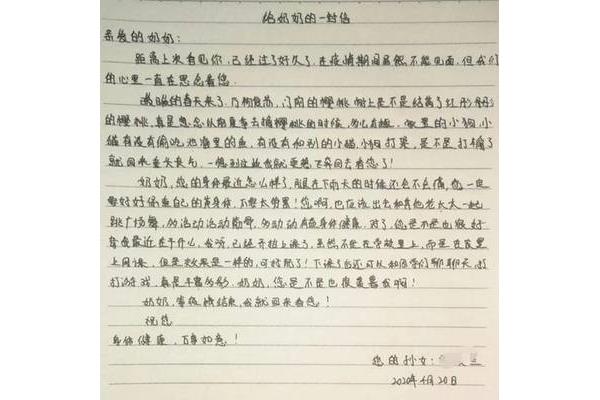 给奶奶的一封信
亲爱的奶奶:
距离上次看见你,已经过了好久了,在疫情期间虽然不能见面,但我们
的心里一直在思念着您。
暖暖的春天来了,万物复苏,门前的樱桃树上是不是结满了红彤彤
的樱桃,真是想念从前夏季去摘樱桃的时候,多么有趣,家里的小狗,小
猫有没有偷吃池塘里的鱼,有没有和别的小猫小狗打架,是不是打输了
就回来垂头丧气,一想到这些我就更想飞奔回去看您了!
奶奶,您的身体最近怎么样了,腿在下雨天的时候还会不会痛,您一定
要好好保重自己的身体,不要太劳累!您啊,也应该出去和其他老太太一起
跳广场舞,多活动活动筋骨,多动动有益身体健康。对了,您是不是也很好
奇我最近在干什么,我呀,已经开始上课了,虽然不是在学校里上,而是在家里
上网课,但是效果是一样的,可好玩了!下课了后还可以和同学们聊聊天,打
打游戏,真是丰富多彩。奶奶,您是不是也很羡慕我啊!
奶奶,等疫情结束,我就回来看您!
祝您
身体健康,万事如意!
您的孙女:
2020年4月20日